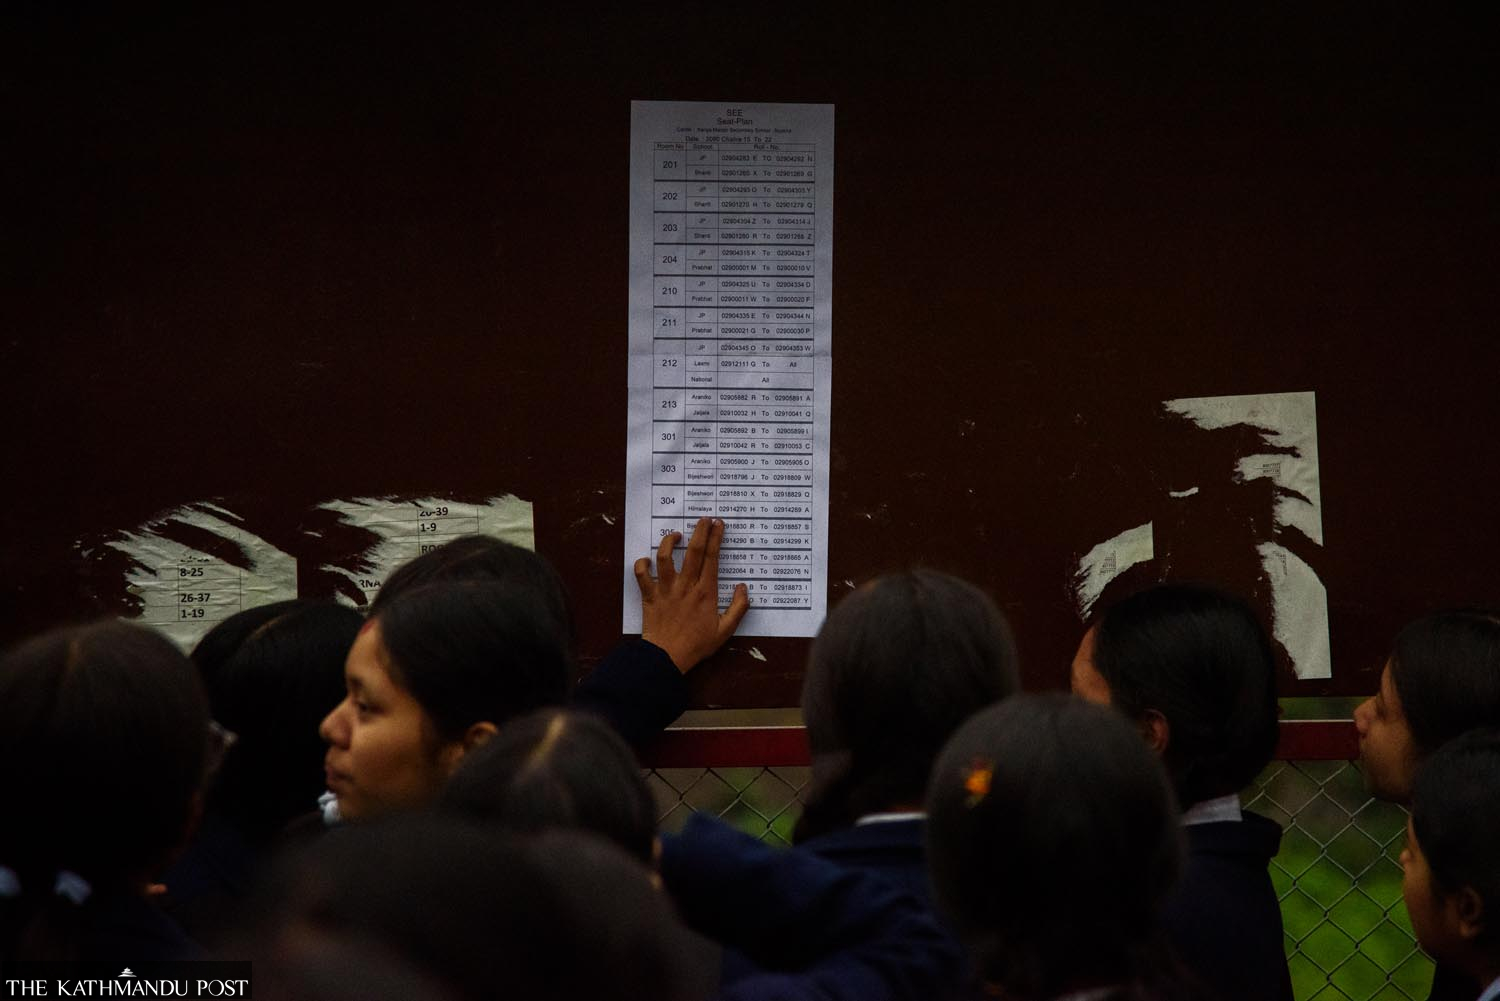 SEE
Seat-Plan
Date : 2080 Chaitra 15 To 22
Room No School Roll - No.
201 JP 02904283 E TO 02904292 N
Shanti 02901260 X To 02901269 G
202 JP 02904293 O To 02904303 Y
Shanti 02901270 H To 02901279 Q
203 JP 02904304 Z To 02904314 J
Shanti 02901280 R To 02901288 Z
204 JP 02904315 K To 02904324 T
Prabhat 02900001 M To 02900010 V
210 JP 02904325 U To 02904334 D
Prabhat 02900011 W To 02900020 F
211 JP 02904335 E To 02904344 N
Prabhat 02900021 G To 02900030 P
212 JP 02904345 O To 02904353 W
Laxmi 02912111 G To All
National All
213 Araniko 02905882 R To 02905891 A
Jaljala 02910032 H To 02910041 Q
301 Araniko 02905892 B To 02905899 I
Jaljala 02910042 R To 02910053 C
303 Araniko 02905900 J To 02905905 O
Bijeshwori 02918796 J To 02918809 W
304 Bijeshwori 02918810 X To 02918829 Q
Himalaya 02914270 H To 02914289 A
305 R To 02918857 S
B To 02914299 K
02918858 T To 02918865 A
02922064 B To 02922076 N
B To 02918873 I
To 02922087 Y
20-39
1-9
8-25
26-37
1-19
THE KATHMANDU POST